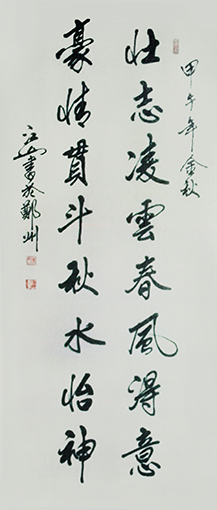 甲午年金秋
壮志凌雲春風得意
豪情貫斗秋水怡神
江山書於鄭州